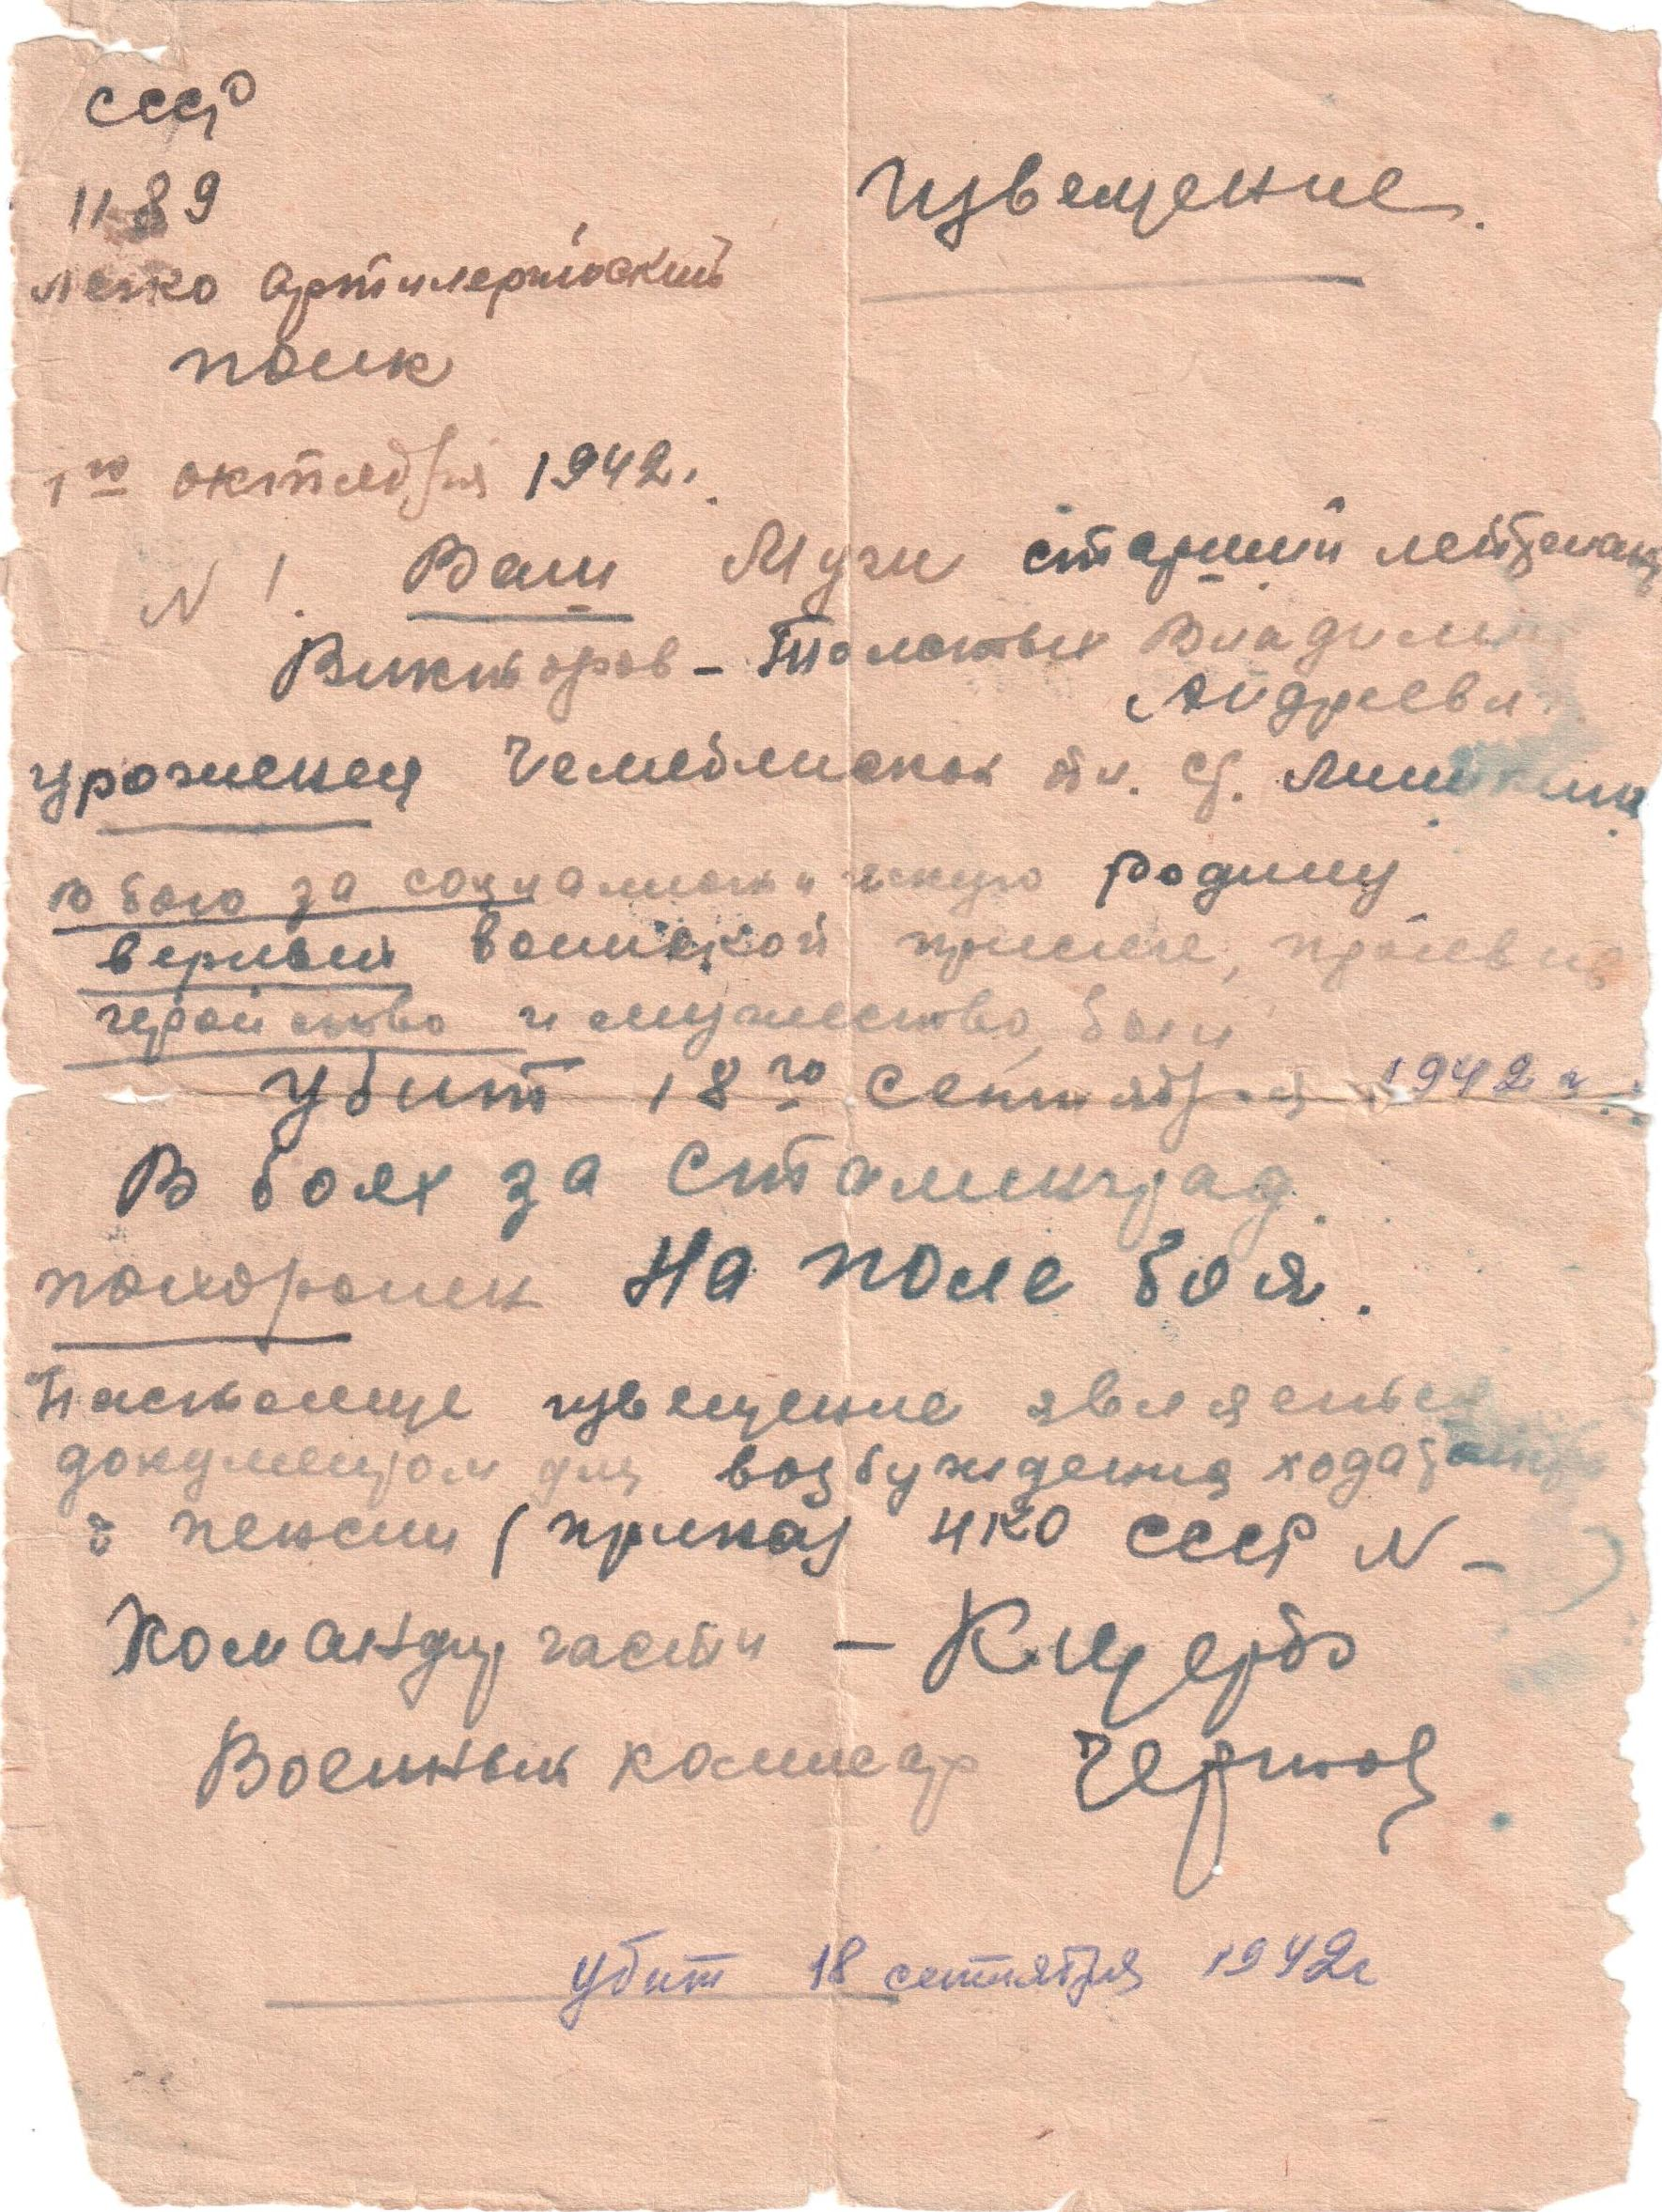 СССР
1189
Легко Артилерийский
полк
1го октября 1942.
Извещение.
N 1. Ваш Муж старший лейтенант
Викторов-Толстых Владимир
Андреевич
уроженец Челябинской обл. Мишкино
в бою за социалистическую родину
верный воинской присяге, проявив
геройство и мужество, был
убит 18го сентября 1942 г.
В боях за Сталинград.
похоронен На поле боя.
Настоящее извещение является
документом для возбуждения ходатайства
о пенсии (приказ НКО СССР N-
Командир части - Кицербо
Военный комиссар Чернов
убит 18 сентября 1942г